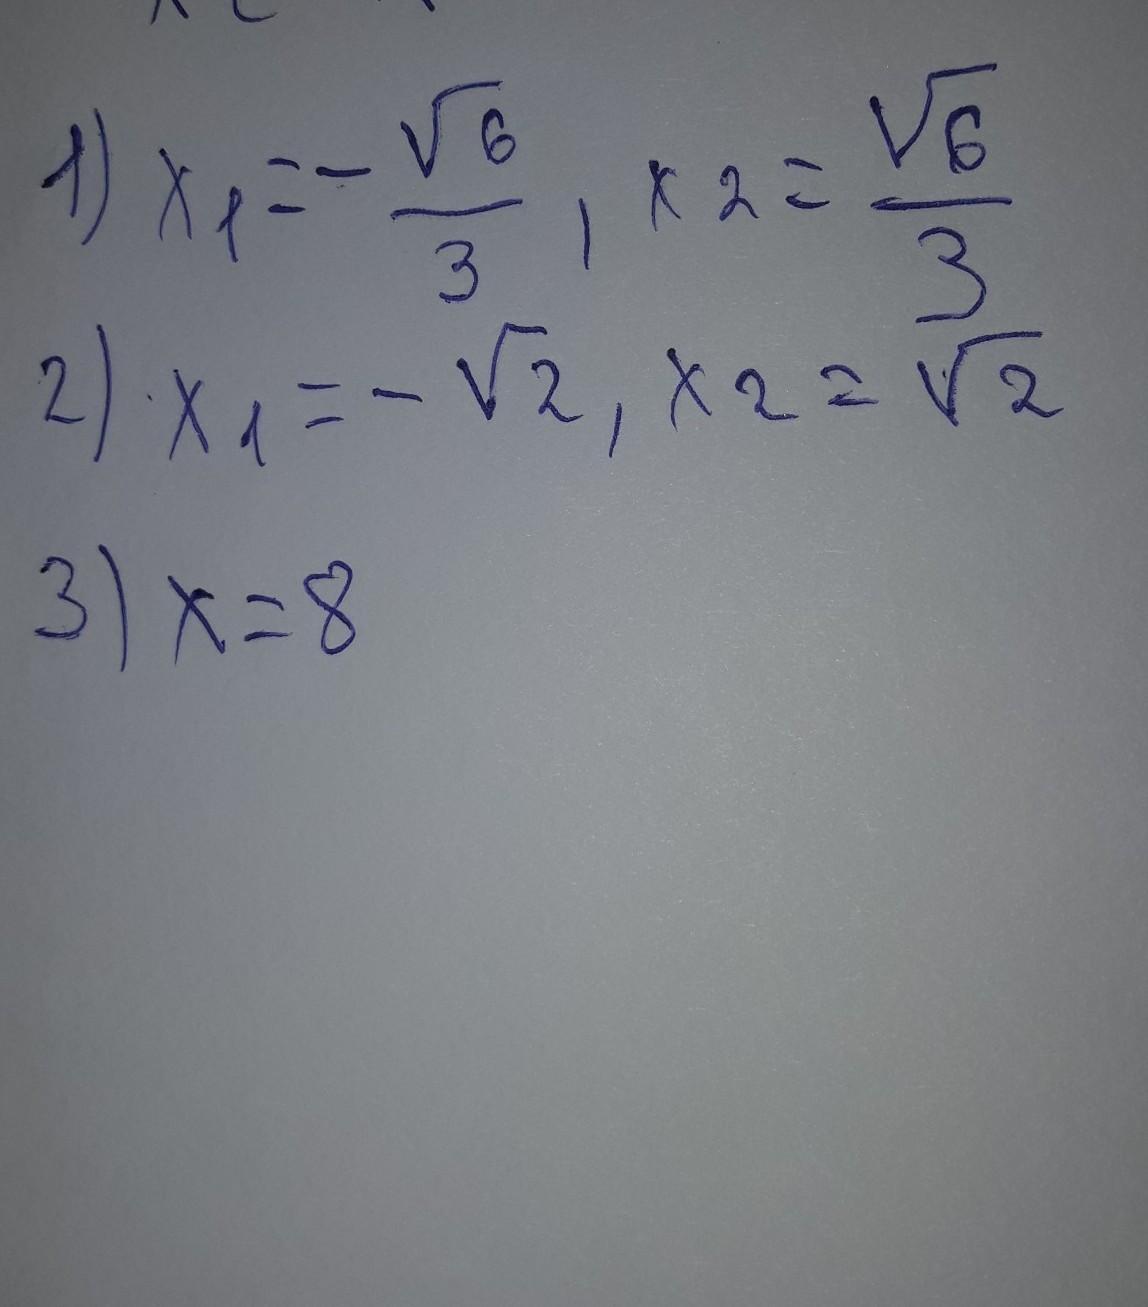 1) x1 = - √6/3, x2 = √6/3
2) x1 = - √2, x2 = √2
3) x = 8